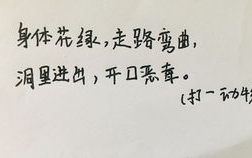 身体花绿,走路弯曲,
洞里进出,开口恶毒。
(打一动物